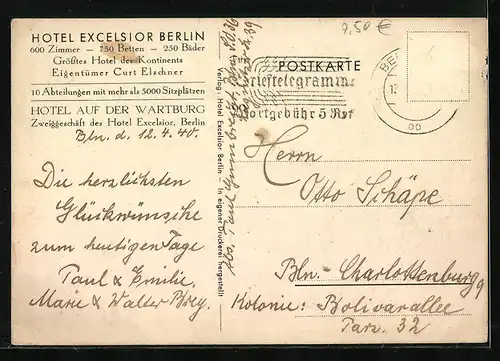 HOTEL EXCELSIOR BERLIN
600 Zimmer — 750 Betten — 250 Bäder
Größtes Hotel des Kontinents
Eigentümer Curt Elschner
10 Abteilungen mit mehr als 5000 Sitzplätzen
HOTEL AUF DER WARTBURG
Zweiggeschäft des Hotel Excelsior, Berlin
Bln. d. 12.4.40.
Die herzlichsten
Glückwünsche
zum heutigen Tage
Paul & Emilie.
Marie & Walter
Verlag: Hotel Excelsior Berlin – In eigener Druckerei hergestellt
9,50 €
POSTKARTE
Brieftelegramm
Ortgebühr 5 Rpf
BE
Herrn
Otto Schäpe
Bln.- Charlottenburg 9
Kolonie: Bolivarallee
Parz. 32